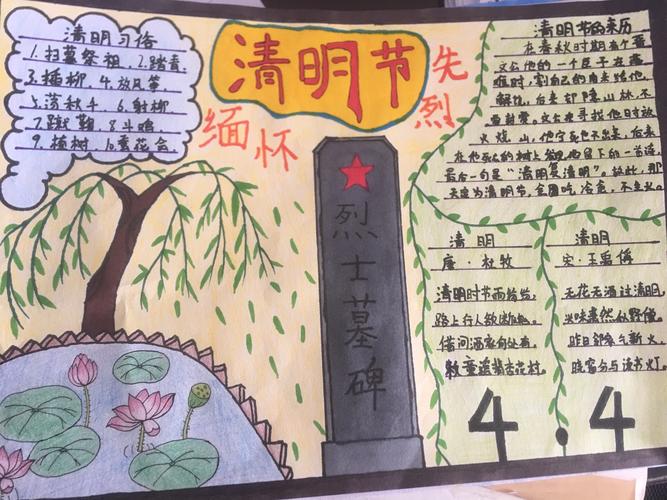 清明习俗
1.扫墓祭祖 2.踏青
3.插柳 4.放风筝
5.荡秋千 6.射柳
7.蹴鞠 8.斗鸡
9.植树 10.蚕花会
清明节
缅怀
先烈
烈士墓碑
清明节的来历
在春秋时期有个晋
文公他的一个臣子在危
难时,割自己的肉来给他
解饥,后来却隐山林不
要封赏,文公在寻找他时放
火烧山,他宁死也不出来,后来
在他死的树上发现他留下的一首诗
最后一句是“清明复清明”。故此,那
天定为清明节,全国吃冷食,不生火
清明
唐·杜牧
清明时节雨纷纷,
路上行人欲断魂。
借问酒家何处有,
牧童遥指杏花村。
清明
宋·王禹偁
无花无酒过清明,
兴味萧然似野僧。
昨日邻家乞新火,
晓窗分与读书灯。
4.4